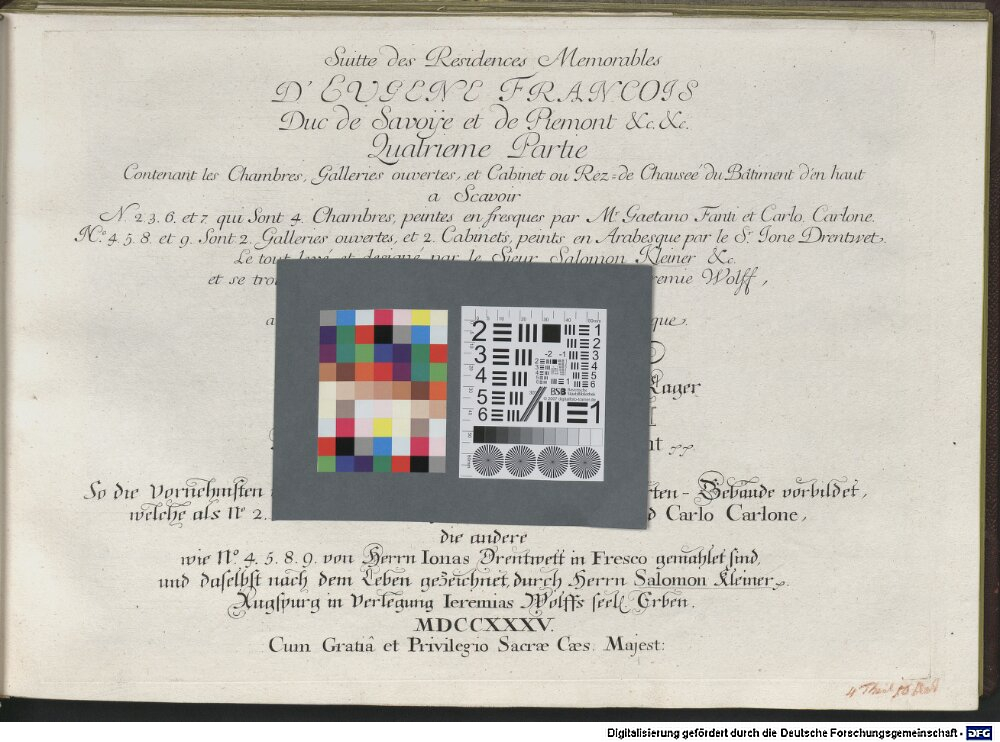 Suitte des Residences Memorables
D'EUGENE FRANCOIS
Duc de Savoije et de Piemont &c. &c.
Quatrieme Partie
Contenant les Chambres, Galleries ouvertes, et Cabinet ou Rez=de Chauseé du Bâtiment d'en haut
a Scavoir
N. 2. 3. 6. et 7 qui Sont 4. Chambres, peintes en fresques par Mr. Gaetano Fanti et Carlo Carlone.
No. 4. 5. 8. et 9. Sont 2. Galleries ouvertes, et 2. Cabinets, peints en Arabesque par le Sr. Ione Drentwet.
Le tout levé et designé par le Sieur Salomon Kleiner &c.
et se Wolff,
Lager
So die vornehmsten Gebäude vorbildet,
welche als No 2. Carlo Carlone,
die andere
wie No. 4. 5. 8. 9. von Herrn Ionas Drentwett in Fresco gemahlet sind,
und daselbst nach dem Leben gezeichnet, durch Herrn Salomon Kleiner.
Augspurg in Verlegung Ieremias Wolffs seel. Erben.
MDCCXXXV.
Cum Gratiâ et Privilegio Sacræ Cæs. Majest:
2 1
3 2
4 3
5 4
6 5
6
-2 -1
BSB Bayerische Staatsbibliothek
1
4 Theil
Digitalisierung gefördert durch die Deutsche Forschungsgemeinschaft - DFG